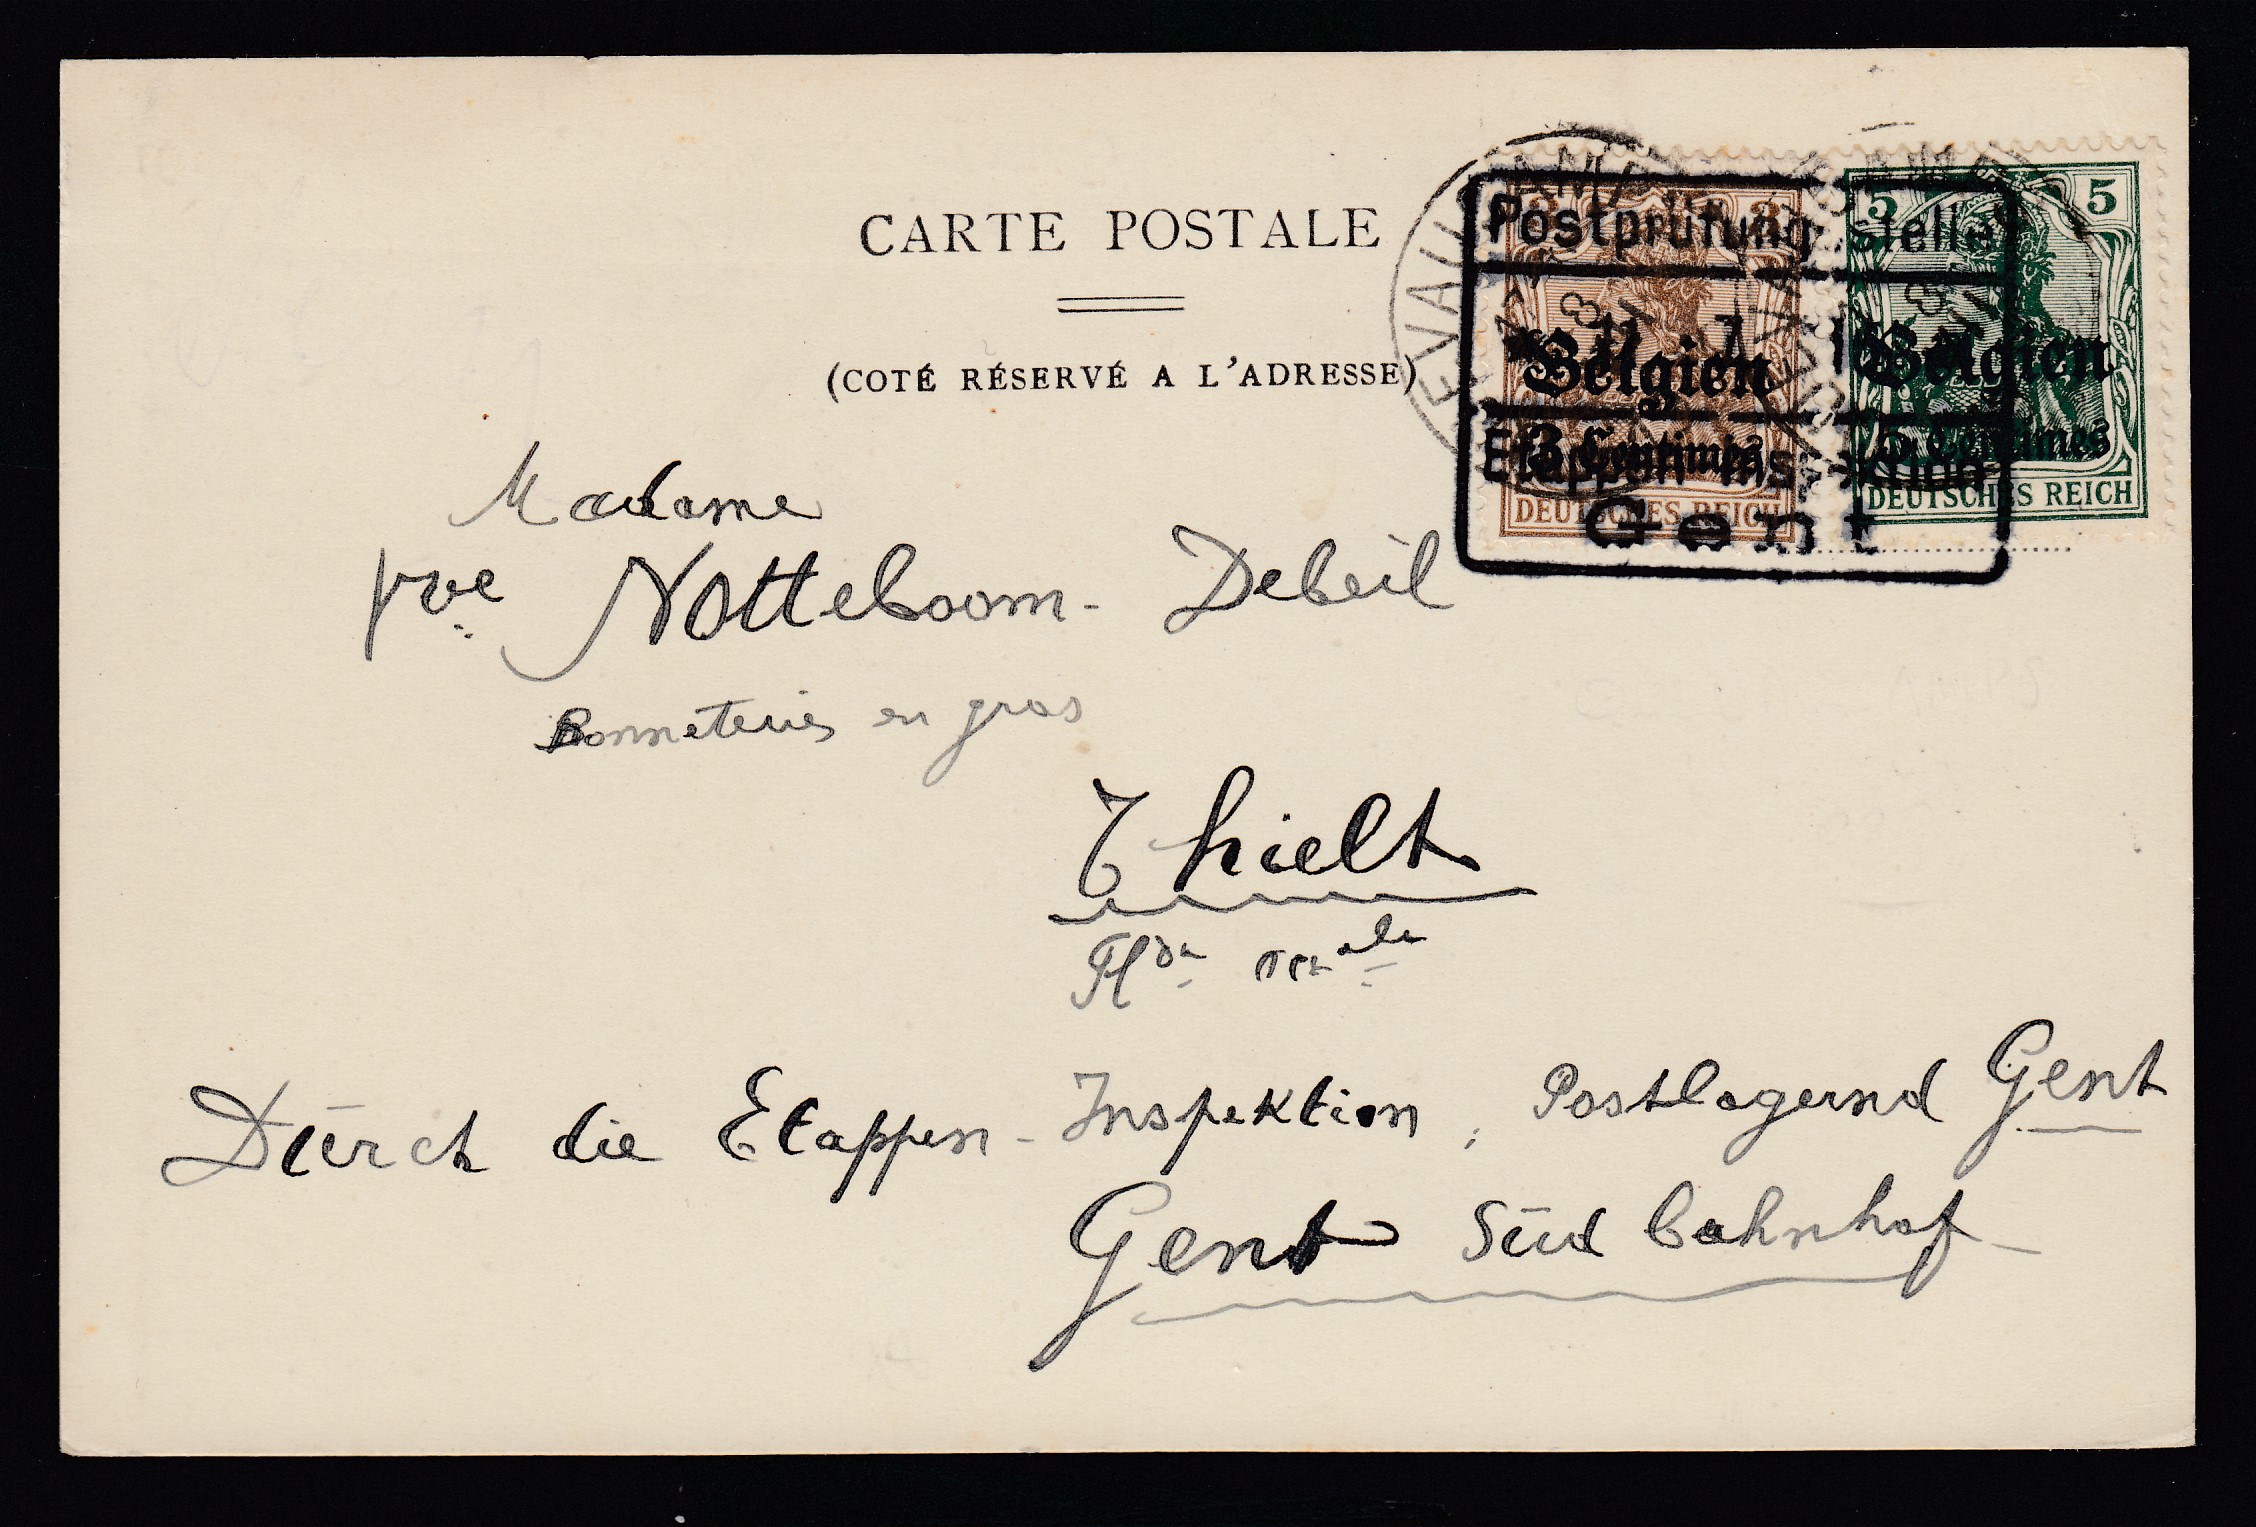 CARTE POSTALE
(COTÉ RÉSERVÉ A L'ADRESSE)
3
5 5
Postprüfungsstelle
Belgien Belgien
3 Centimes 5 Centimes
Etappen-Inspektion
DEUTSCHES REICH DEUTSCHES REICH
Gent
Madame
Vve Notteboom - Debeil
Bonneteries en gros
Thielt
Fldre
Dūrch die Etappen - Inspektion, Postlagernd Gent
Gent Sūd bahnhof